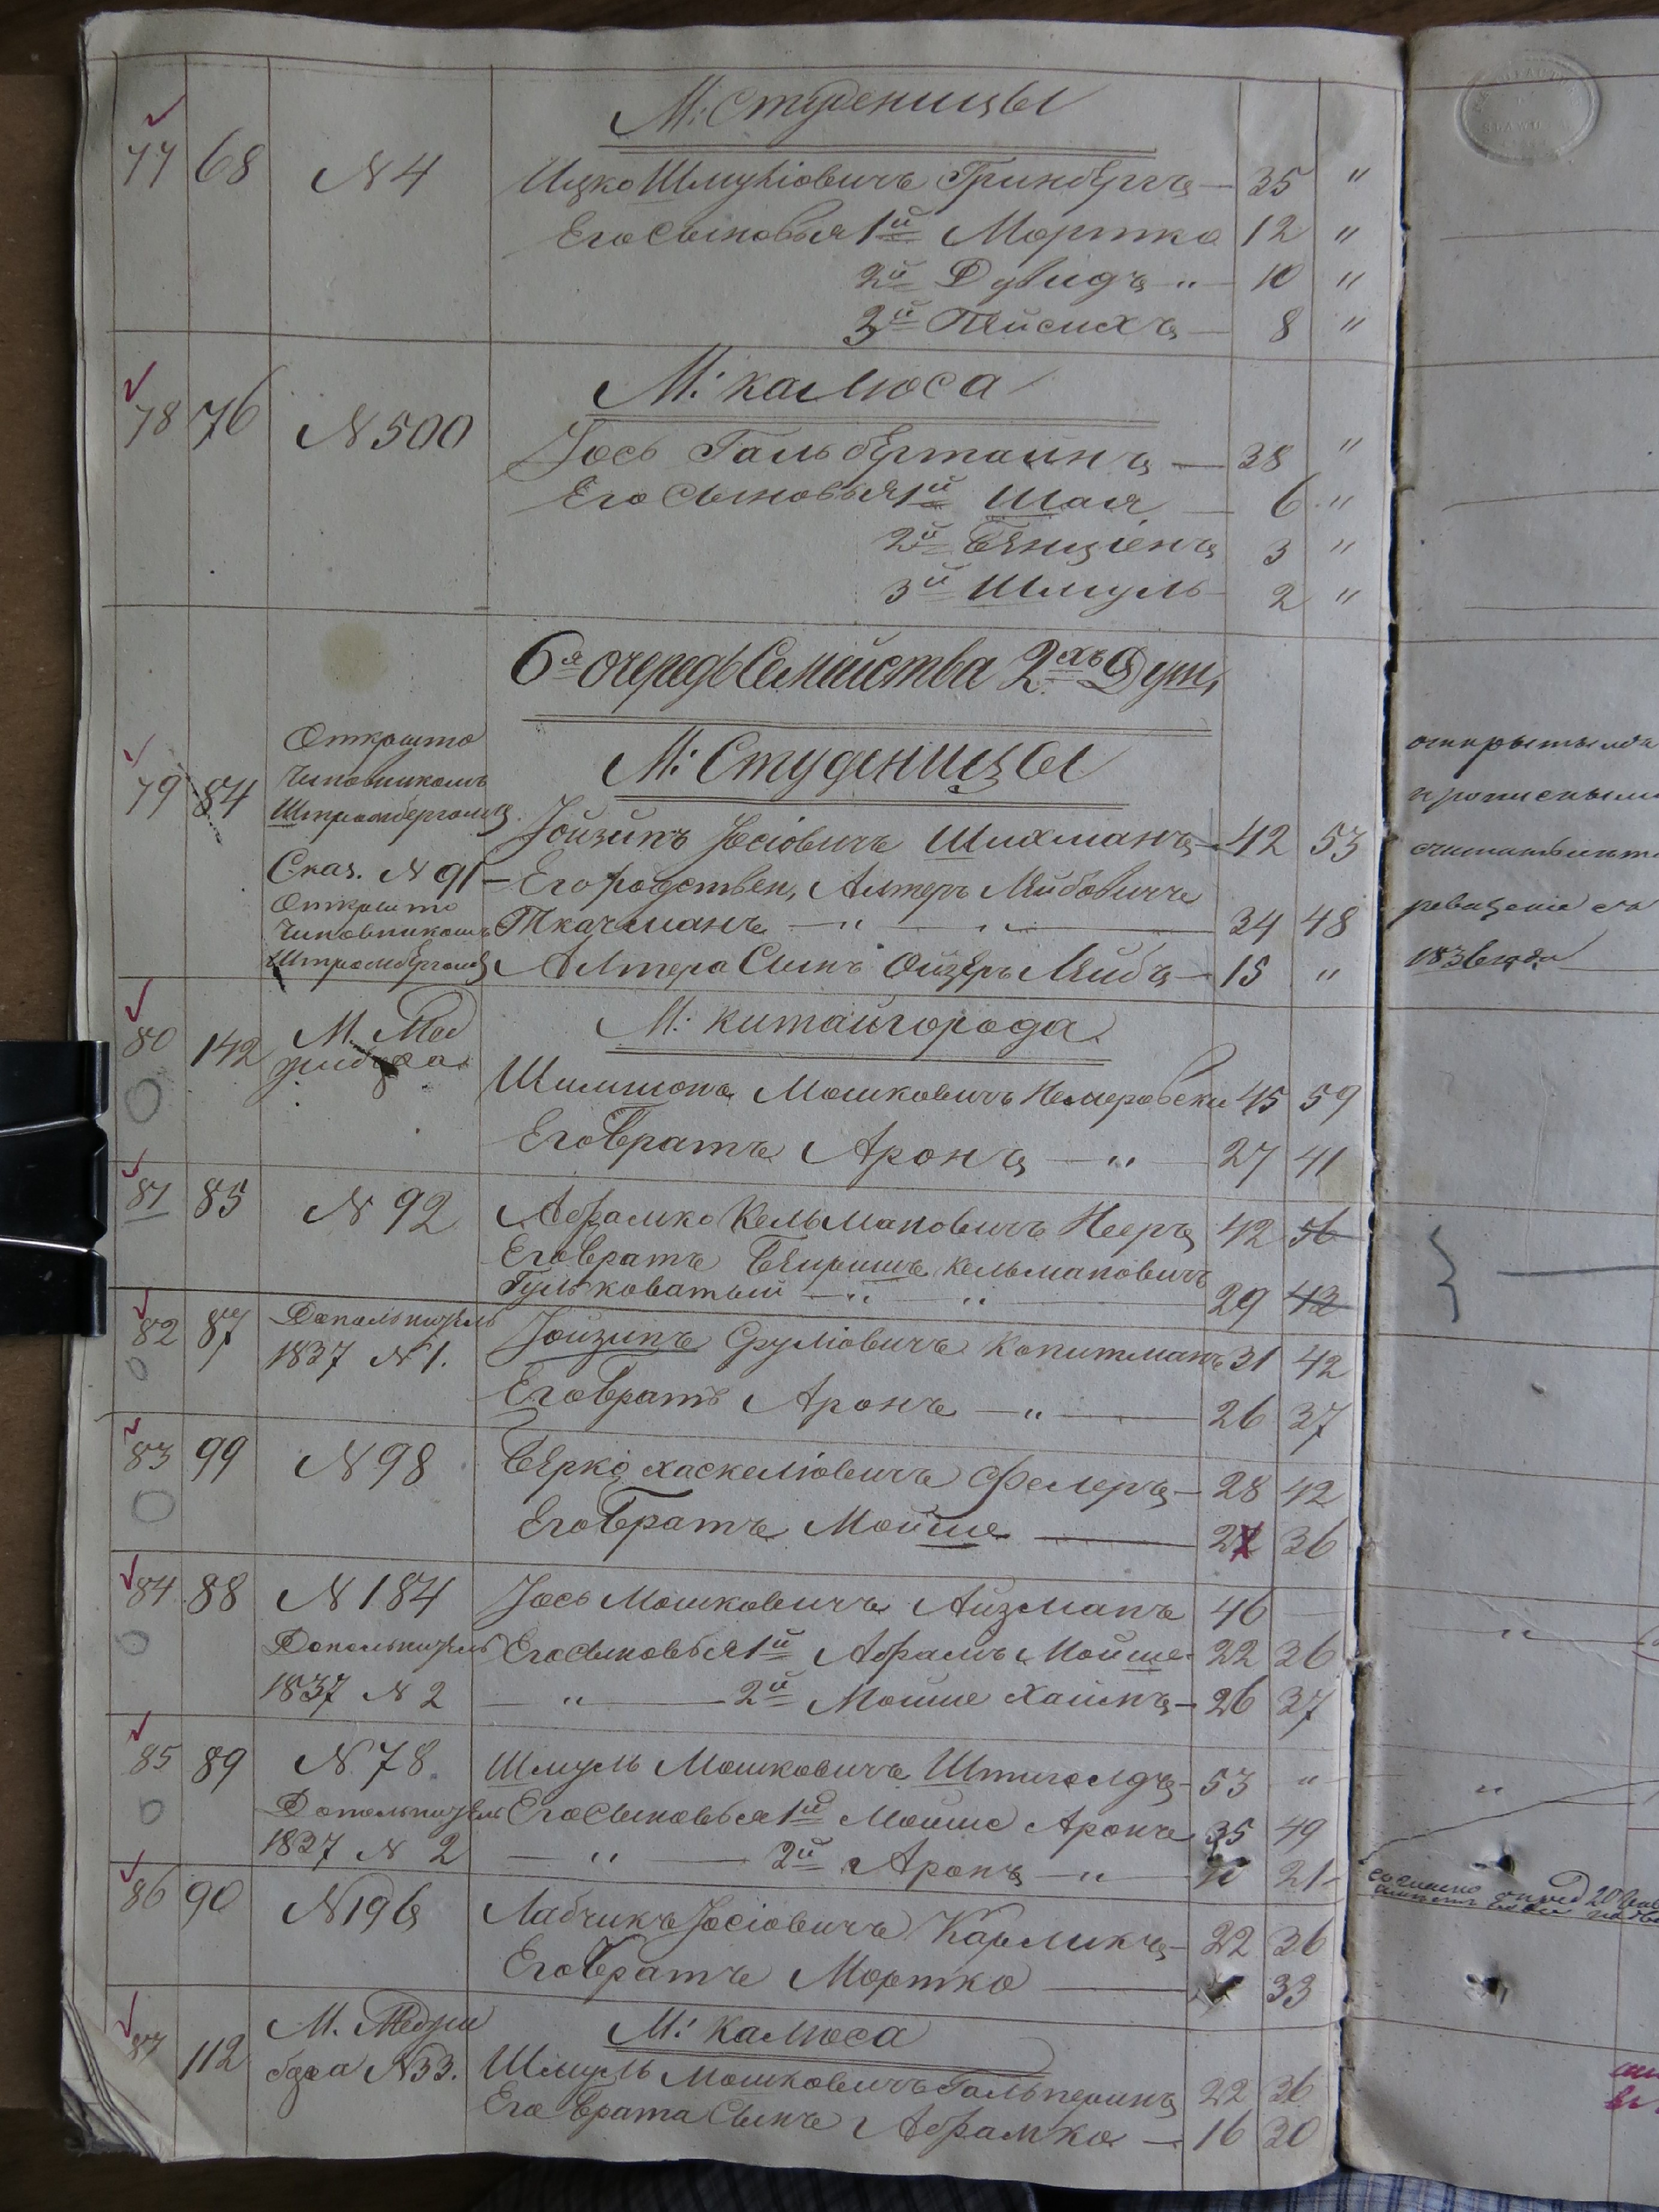 М: Студеницы
77 68 N 4 Ицко Шмуліовичъ Гринбергъ — 35 "
Его сыновья 1й Мортко 12 "
2й Дувидъ " — 10 "
3й Пейсихъ — 8 "
М: Калюса
78 76 N 500 Іось Гальбертаинъ — 38 "
Его сыновья 1й Шая — 6 "
2й Бенціенъ 3 "
3й Шмуль 2 "
6я очередь Семейства 2хъ Душ,
М: Студеницы
Открыто
Чиновникомъ
Штромбергомъ
79 84 Іойзипъ Іосіовичъ Шихманъ — 42 53
Сказ. N 91 — Его родствен, Алтеръ Лейбовичъ
Открыто
Чиновникомъ Ткачманъ — " — " — 34 48
Штромбергомъ Алтера Сынъ Ойзеръ Лейбъ — 15 "
открытыми
прописными
1836 года
М: Китайгорода
80 142 М. Мед
жибожа Шимшонъ Мошковичъ Немеровски 45 59
Его Братъ Аронъ — " — 27 41
81 85 N 92 Абрамко Кельмановичъ Нееръ 42 56
Его Братъ Беиришъ Кельмановичъ
Гульковатый — " — " — 29 43
82 87 Дополнитель Іойзипъ Сруліовичъ Копитманъ 31 42
1837 N 1. Его Братъ Аронъ — " — 26 37
83 99 N 98 Берко Хаскеліовичъ Фелеръ — 28 42
Его Братъ Мойше — 22 36
84 88 N 184 Іось Мошковичъ Айзманъ 46 —
Дополнитель Его сыновья 1й Абрамъ Мойше 22 36
1837 N 2 — " — 2й Мойше Хаимъ — 26 37
85 89 N 78. Шмуль Мошковичъ Штиголдъ — 53 "
Дополнитель Его сыновья 1й Мойше Аронъ 35 49
1837 N 2 — " — 2й Аронъ — " — 21
86 90 N 196 Лабчикъ Іосіовичъ Карликъ — 22 36
Его Братъ Мортко — 33
М: Калюса
87 112 М. Меджи
божа N 33. Шмуль Мошковичъ Гальперинъ 22 36
Его Брата Сынъ Абрамко — 16 30